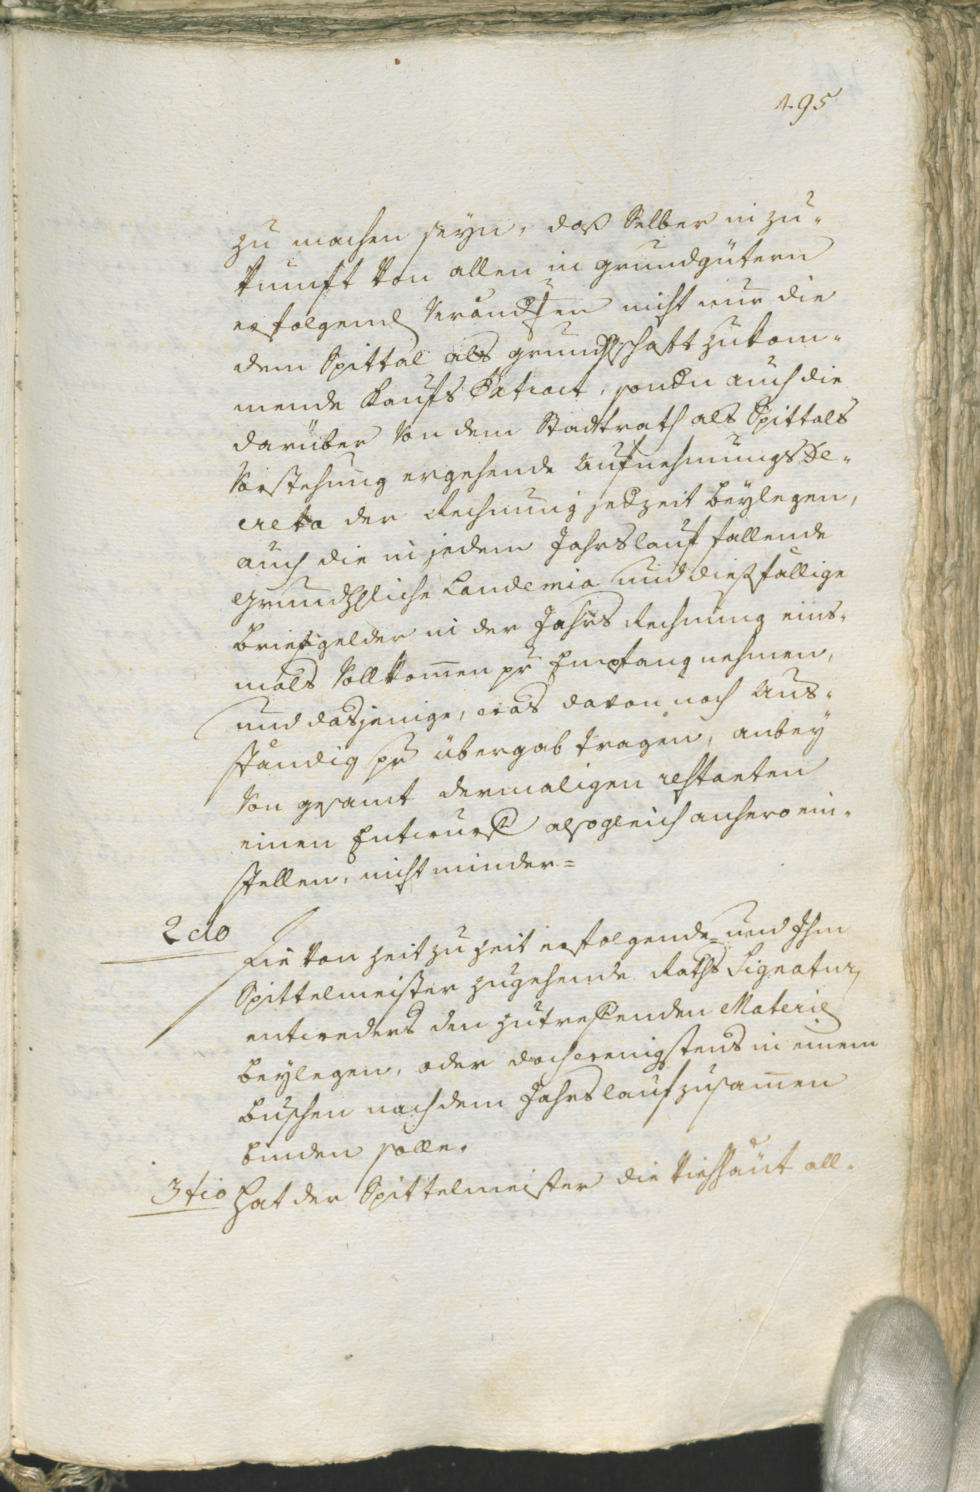 495
zu machen seyn, daß Selber in zu-
kunft von allen in grundgütern
erfolgend
dem Spittal als grundhschaft zukom-
mende Kaufs sondn auch die
darüber von dem Stadtrath als Spittals
Vorstehung ergehende Aufnehmungs De-
creta der Rechnung jedzeit beylegen,
auch die in jedem Jahrslauf fallende
grundhliche Laudemia und dießfällige
briefgelder in der Jahrs Rechnung eins-
mals Vollkomen pr Empfang nehmen,
und dasjenige, was davon noch Aus-
ständig pr übergab tragen, anbey
von gesamt dermaligen restanten
einen Entwurf alsogleich anhero ein-
stellen, nicht minder =
2do Die von zeit zu zeit erfolgende und Ihm
Spittelmeister zugehende Raths Signatur,
entweders den zutreffenden Materie
beylegen, oder doch wenigstens in einem
buschen nach dem Jahrslauf zusamen
binden solle.
3tio Hat der Spittelmeister die Viehhäut all-